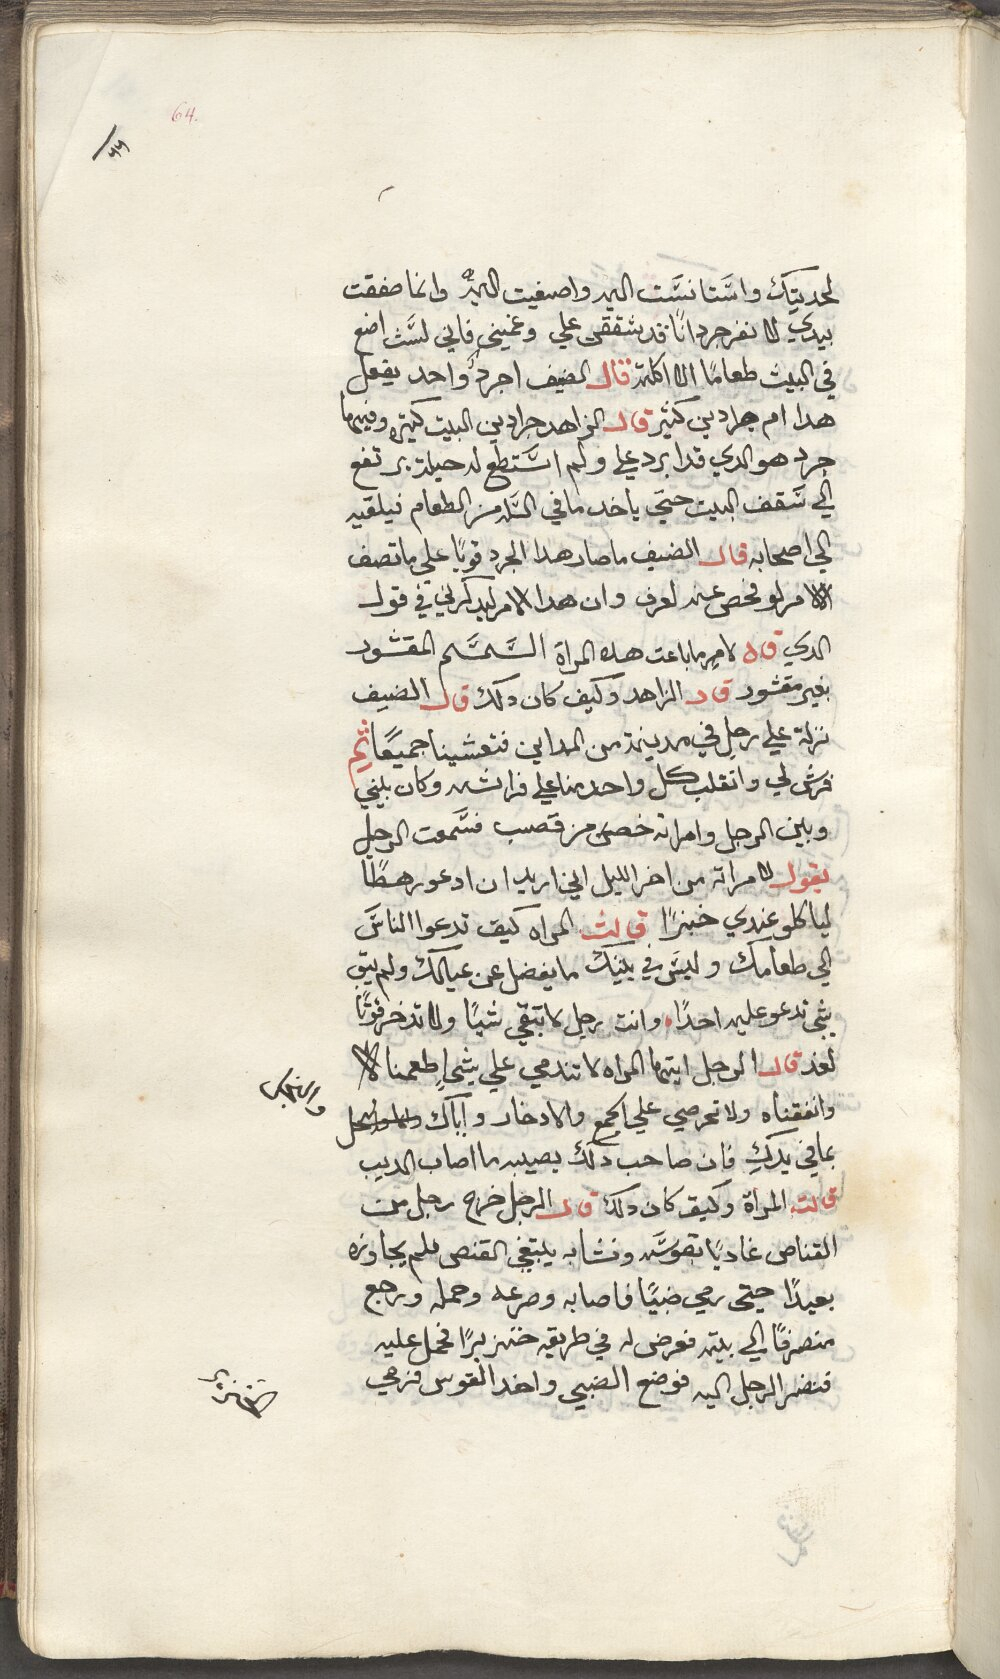 64.
٦٤
لحديتك واستانست اليه واصغيت اليه وانما صفقت
بيدي لا نفر جردانًا قد شققن علي وغميني فاني لست اضع
في البيت طعامًا الا اكلته فقال الضيف اجردٌ واحد يفعل
هدا ام جرادين كثير قال الزاهد جرادين البيت كتيره وفيهما
جرد هو الدي قد ابرد علي ولم استطع له حيلة يرتفع
الي سقف البيت حتي ياخد ما في السله من الطعام فيلقيه
الي اصحابه قال الضيف ما صار هدا الجرد قويًا علي ما تصف
الا لامر لو فحص عنه لعرف وان هدا الامر ليدكرني في قول
الدي قال لامر ما باعت هده المراة السمسم المقشور
بغير مقشور قال الزاهد وكيف كان دلك قال الضيف
نزلة علي رجل في مدينة من المداين فتعشينا جميعًا ثم
فرش لي وانقلب كل واحد منا علي فراشه وكان بيني
وبين الرجل وامراته خص من قصب فسمعت الرجل
يقول لامراته من اخر الليل اني اريد ان ادعو رهطًا
لياكلو عندي خبزًا قالت المراه كيف تدعوا الناس
الي طعامك وليس في بيتك ما يفضل عن عيالك ولم يبق
شي تدعو عليه احدًا وانت رجل لا تبقي شيًا ولا تدخر قوتًا
لغد قال الرجل ايتها المراه لا تندمي علي شيٍ اطعمناه
وانفقناه ولا تحرصي علي الجمع والادخار واياك والبخل
بما في يدك فان صاحب دلك يصيبه ما اصاب الديب
قالت المراة وكيف كان دلك قال الرجل خرج رجل من
القناص غاديًا بقوسه ونشابه يبتغي القنص فلم يجاوزه
بعيدًا حيتى رمي ضبيًا فاصابه وصرعه وحمله ورجع
منصرفًا الي بيته فعرض له في طريقه خنزيرًا فحمل عليه
فنضر الرجل اليه فوضع الضبي واخد القوس فرمي
والبخل
الخنزير